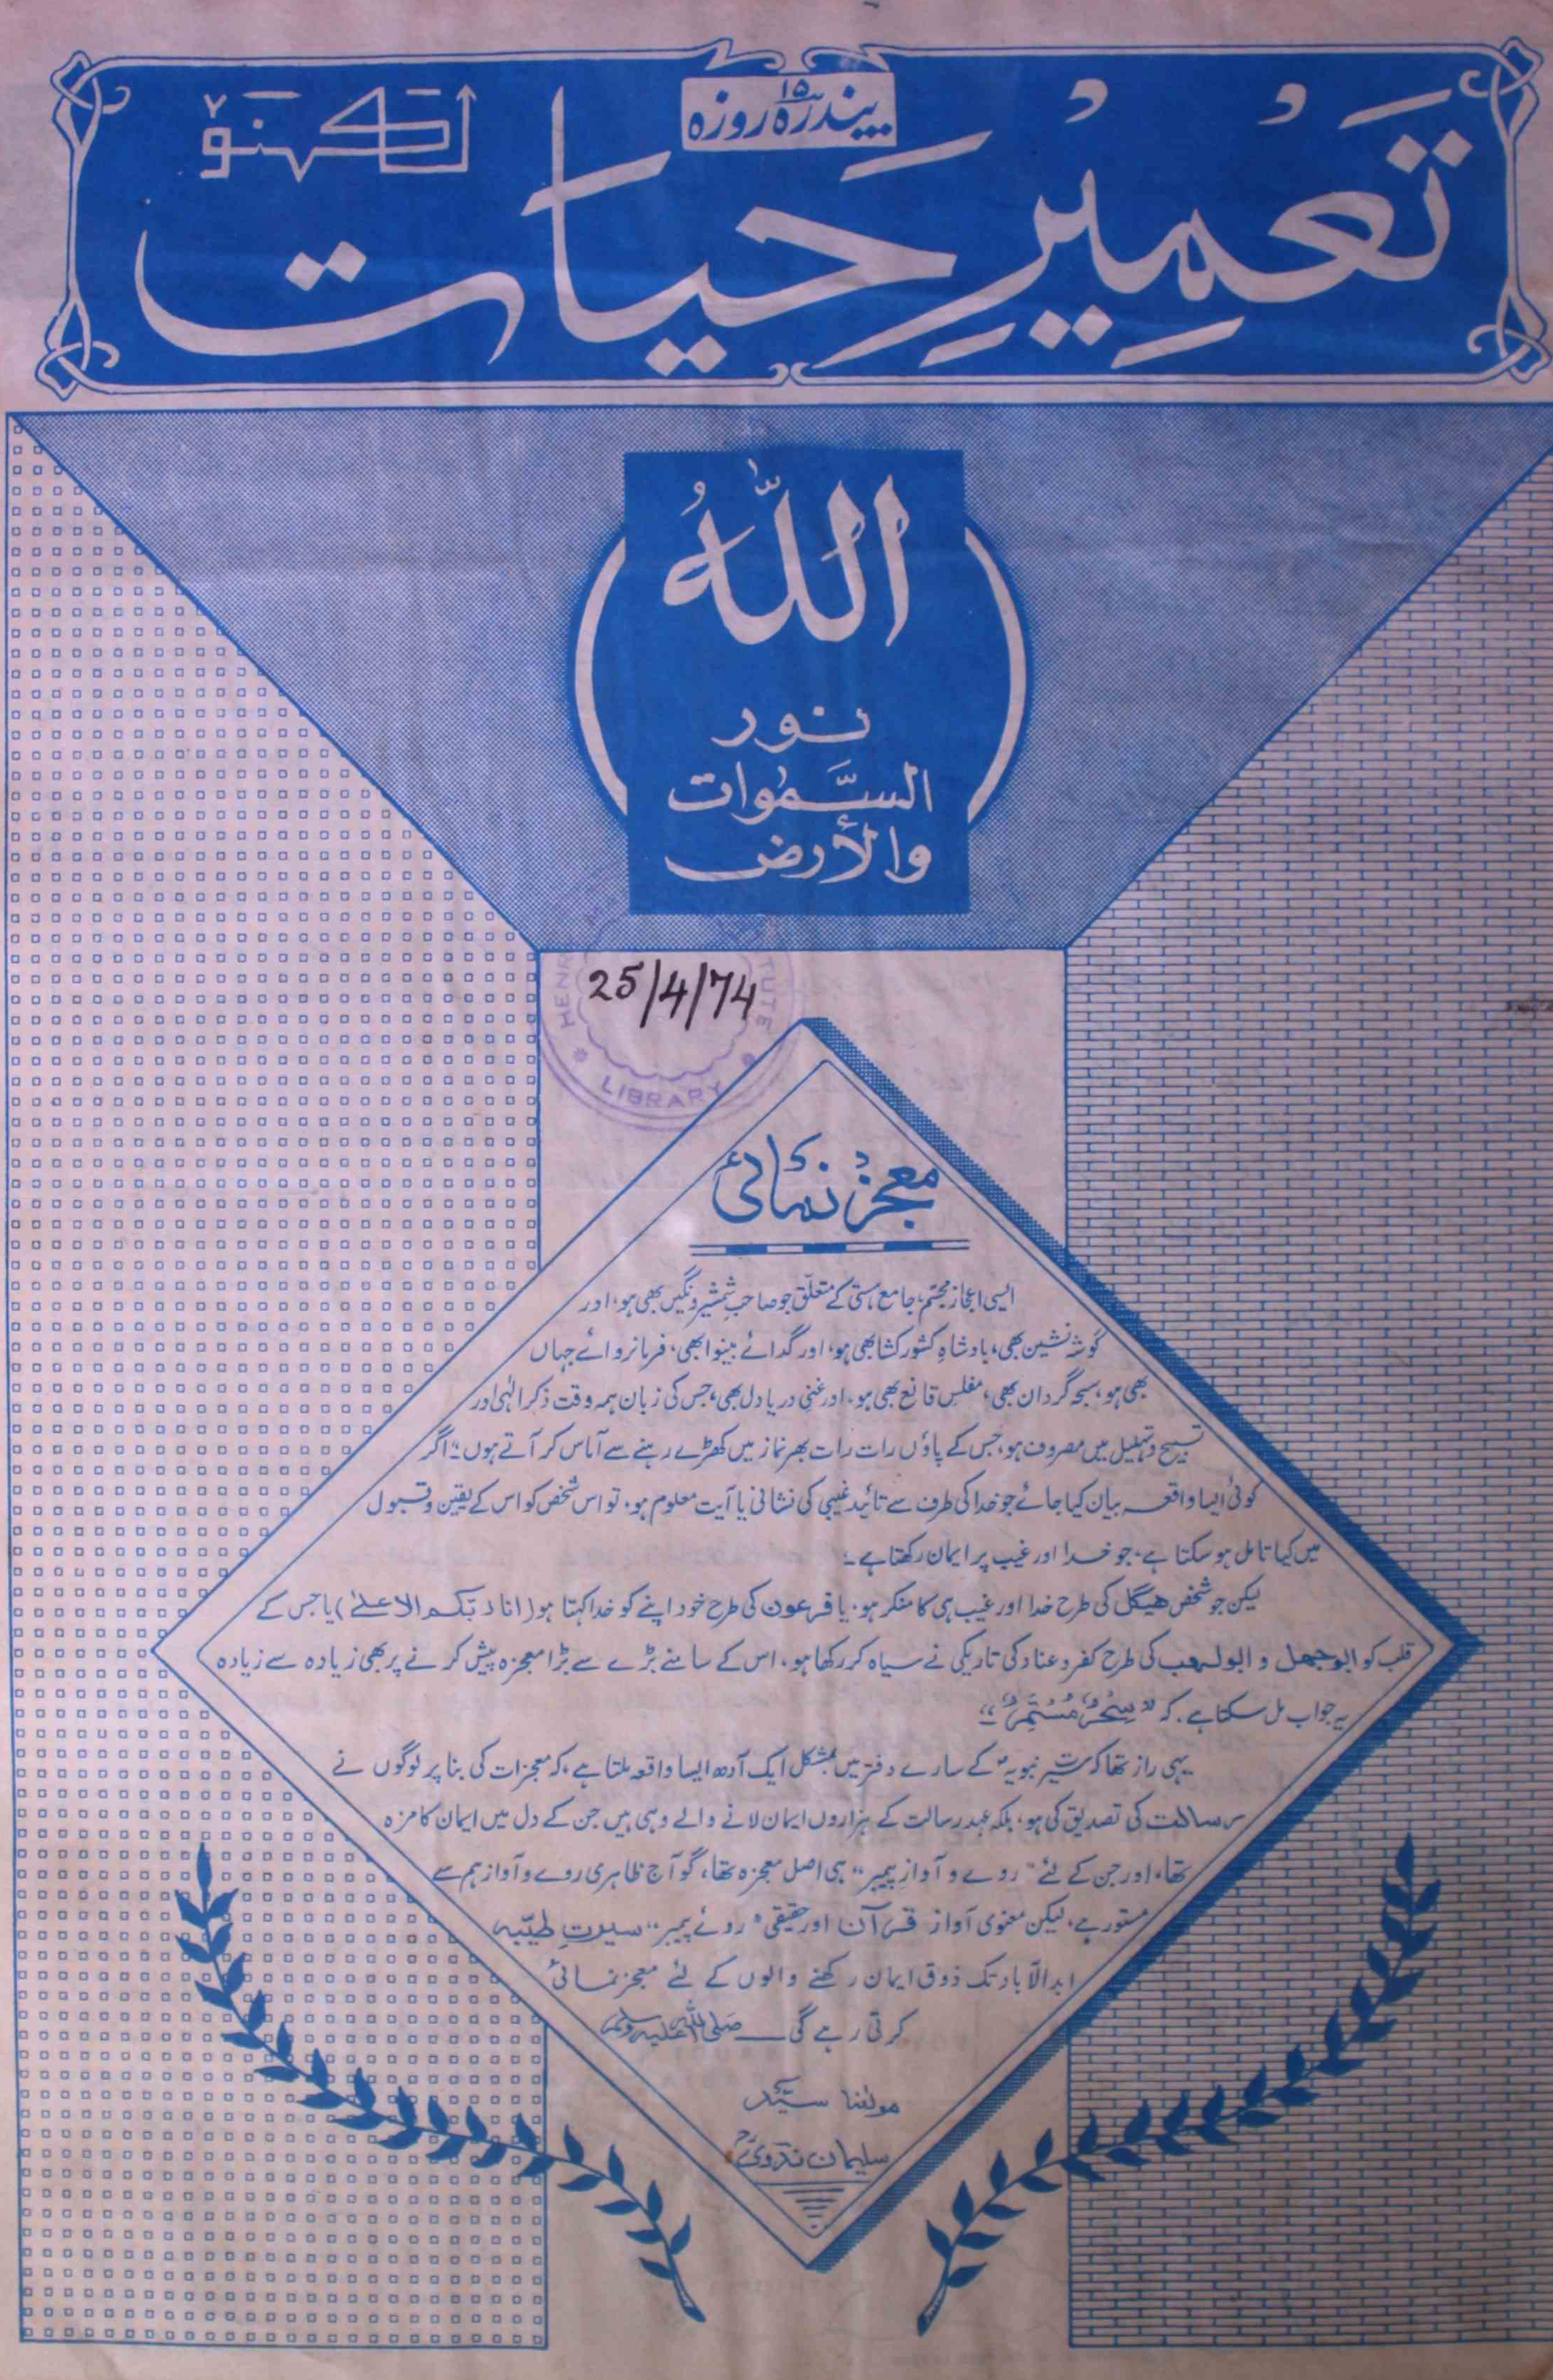 پندرہ ۱۵ روزہ
تَعمِیرِ حَیات
لکھنؤ
اللّٰہُ
نور
السَّمٰوات
والأرض
25/4/74
LIBRARY
معجز نمائی
ایسی اعجاز مجسّم، جامع ہستی کے متعلّق جو صاحبِ شمشیر و نگیں بھی ہو، اور
گوشہ نشین بھی، بادشاہِ کشور کشا بھی ہو، اور گدائے بینوا بھی، فرمانروائے جہاں
بھی ہو، سبحہ گرداں بھی، مفلسِ قانع بھی ہو، اور غنیِ دریا دل بھی، جس کی زبان ہمہ وقت ذکر الٰہی اور
تسبیح و تہلیل میں مصروف ہو، جس کے پاؤں رات رات بھر نماز میں کھڑے رہنے سے آماس کر آتے ہوں؛ اگر
کوئی ایسا واقعہ بیان کیا جائے جو خدا کی طرف سے تائید غیبی کی نشانی یا آیت معلوم ہو، تو اس شخص کو اس کے یقین و قبول
میں کیا تامل ہو سکتا ہے، جو خدا اور غیب پر ایمان رکھتا ہے ۔
لیکن جو شخص ہیگل کی طرح خدا اور غیب ہی کا منکر ہو، یا فرعون کی طرح خود اپنے کو خدا کہتا ہو (انا ربکم الاعلےٰ) یا جس کے
قلب کو ابوجہل و ابولہب کی طرح کفر و عناد کی تاریکی نے سیاہ کر رکھا ہو، اس کے سامنے بڑے سے بڑا معجزہ پیش کرنے پر بھی زیادہ سے زیادہ
یہ جواب مل سکتا ہے، کہ "سِحْرٌ مُسْتَمِرٌّ" ۔
یہی راز تھا کہ سیرتِ نبویہؐ کے سارے دفتر میں بمشکل ایک آدھ ایسا واقعہ ملتا ہے، کہ معجزات کی بنا پر لوگوں نے
رسالت کی تصدیق کی ہو، بلکہ عہد رسالت کے ہزاروں ایمان لانے والے وہی ہیں جن کے دل میں ایمان کا مزہ
تھا، اور جن کے لئے "روے و آوازِ پیمبر" ہی اصل معجزہ تھا، گو آج ظاہری روے و آواز ہم سے
مستور ہے، لیکن معنوی آواز قرآن اور حقیقی "روئے پیمبر" سیرتِ طیّبہ
ابدالآباد تک ذوق ایمان رکھنے والوں کے لئے معجز نمائی
کرتی رہے گی ــــ صلی اللہ علیہ وسلم
مولٰنا سیّد
سلیمان ندویؒ